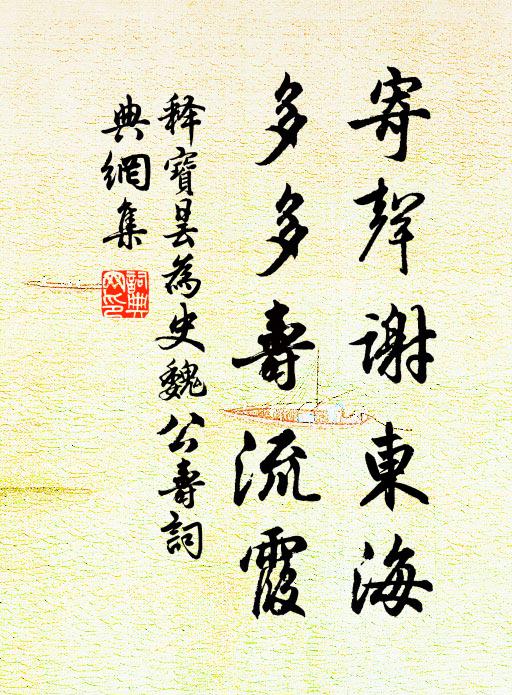 寄聲謝東海
多多壽流霞
释寶曇為史魏公壽詞
典網集
詞典網印